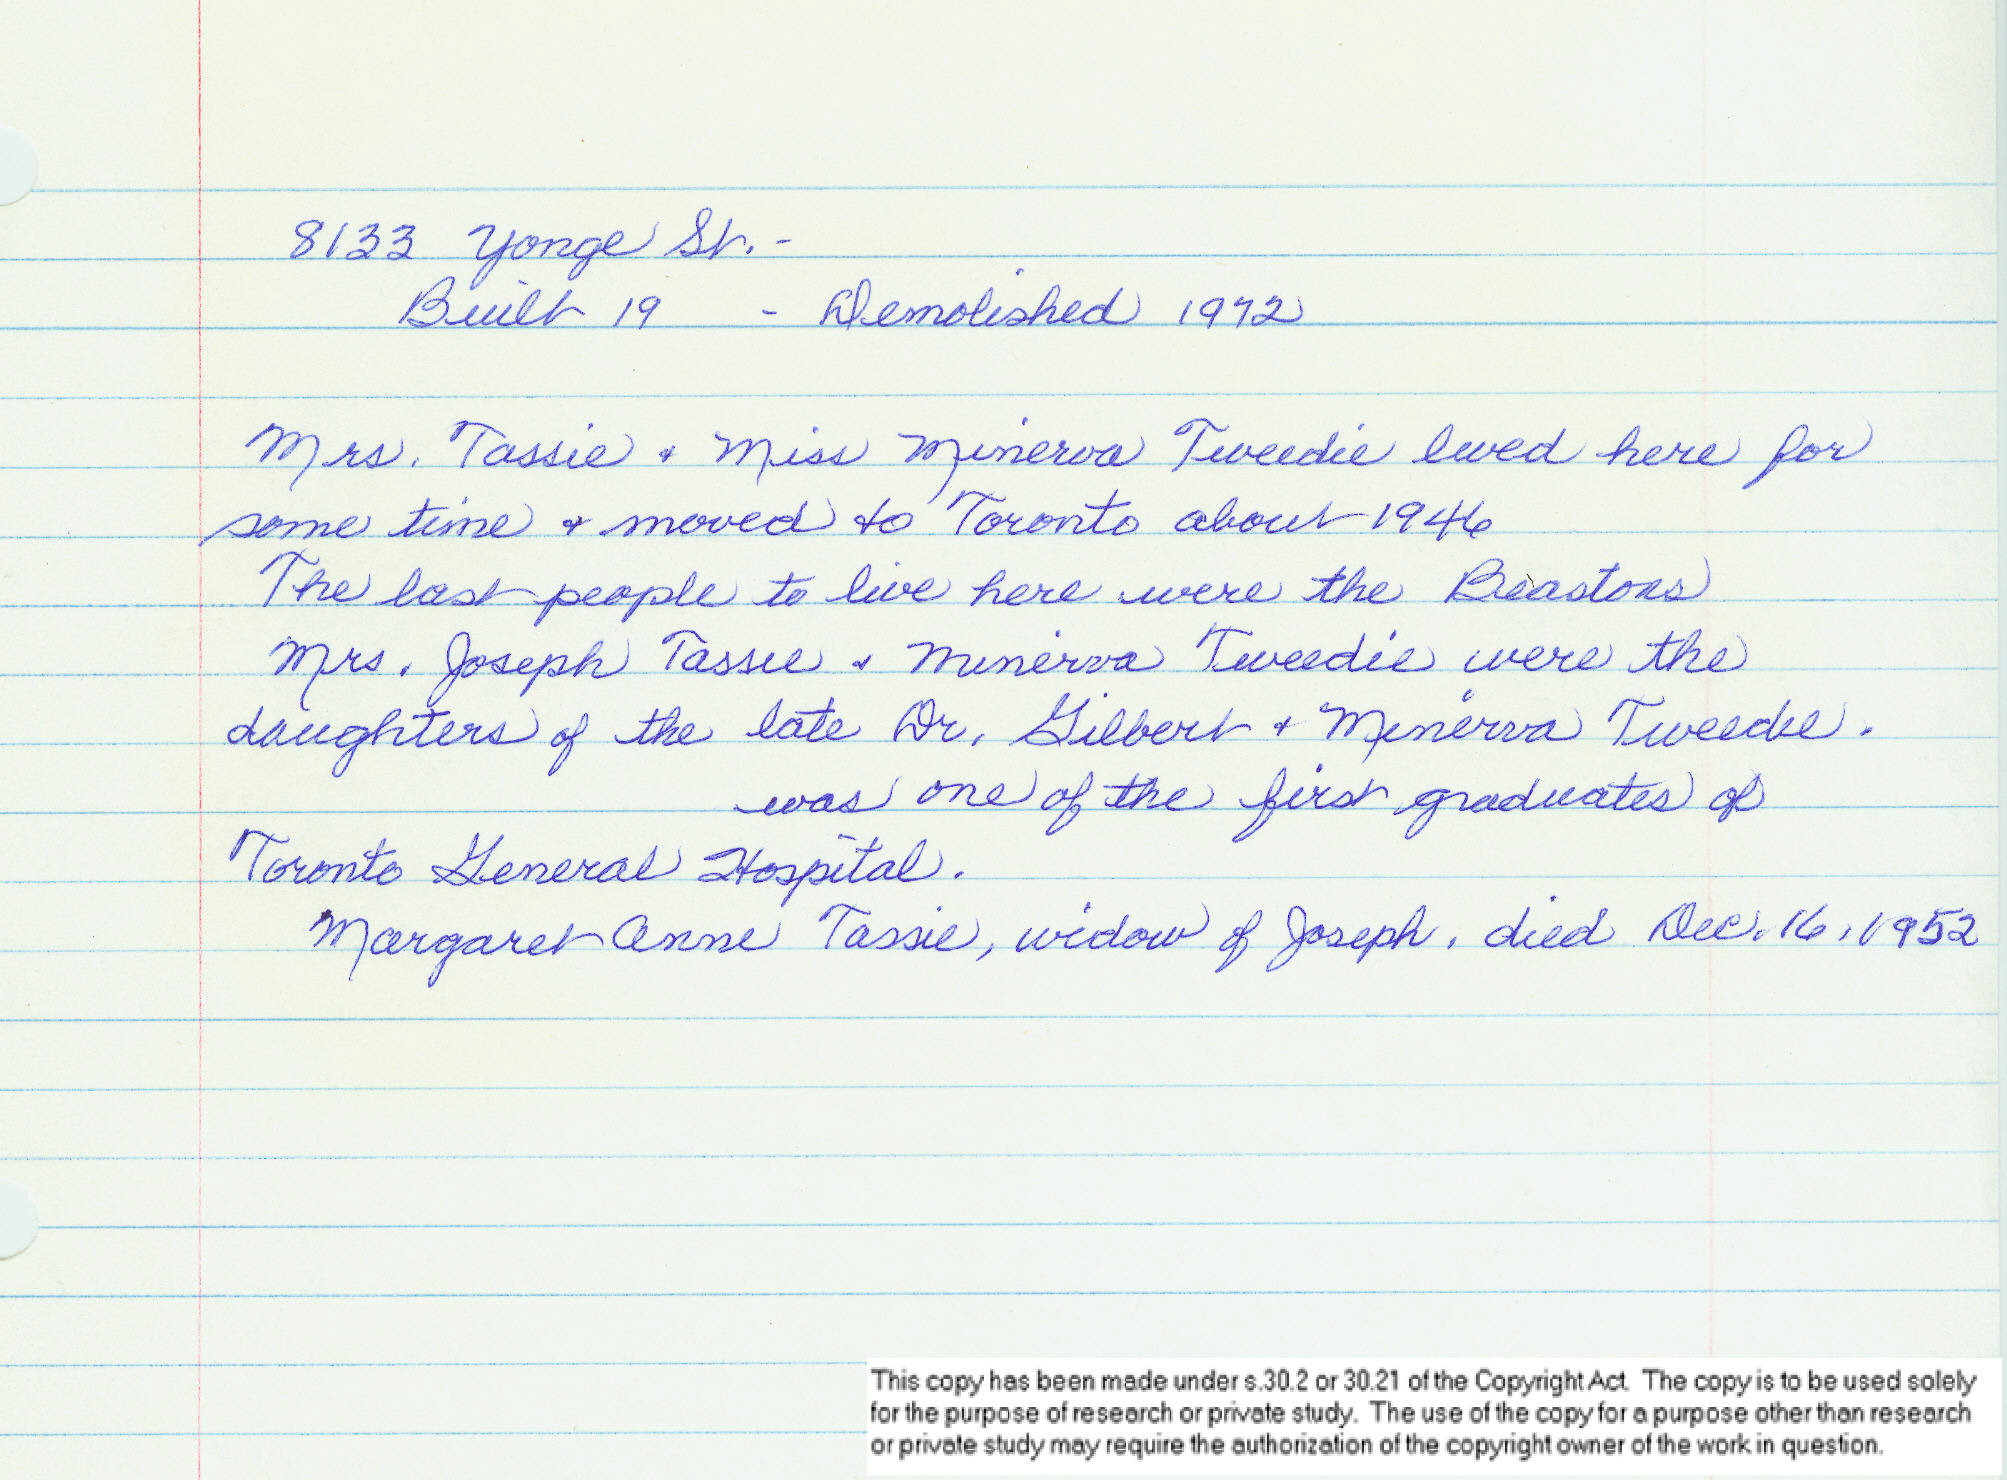 8133 Yonge St. -
Built 19 - Demolished 1972
Mrs. Tassie & Miss Minerva Tweedie lived here for
some time & moved to Toronto about 1946
The last people to live here were the Beastons
Mrs. Joseph Tassie & Minerva Tweedie were the
daughters of the late Dr. Gilbert & Minerva Tweedie.
was one of the first graduates of
Toronto General Hospital.
Margaret Anne Tassie, widow of Joseph, died Dec. 16, 1952
This copy has been made under s.30.2 or 30.21 of the Copyright Act. The copy is to be used solely
for the purpose of research or private study. The use of the copy for a purpose other than research
or private study may require the authorization of the copyright owner of the work in question.